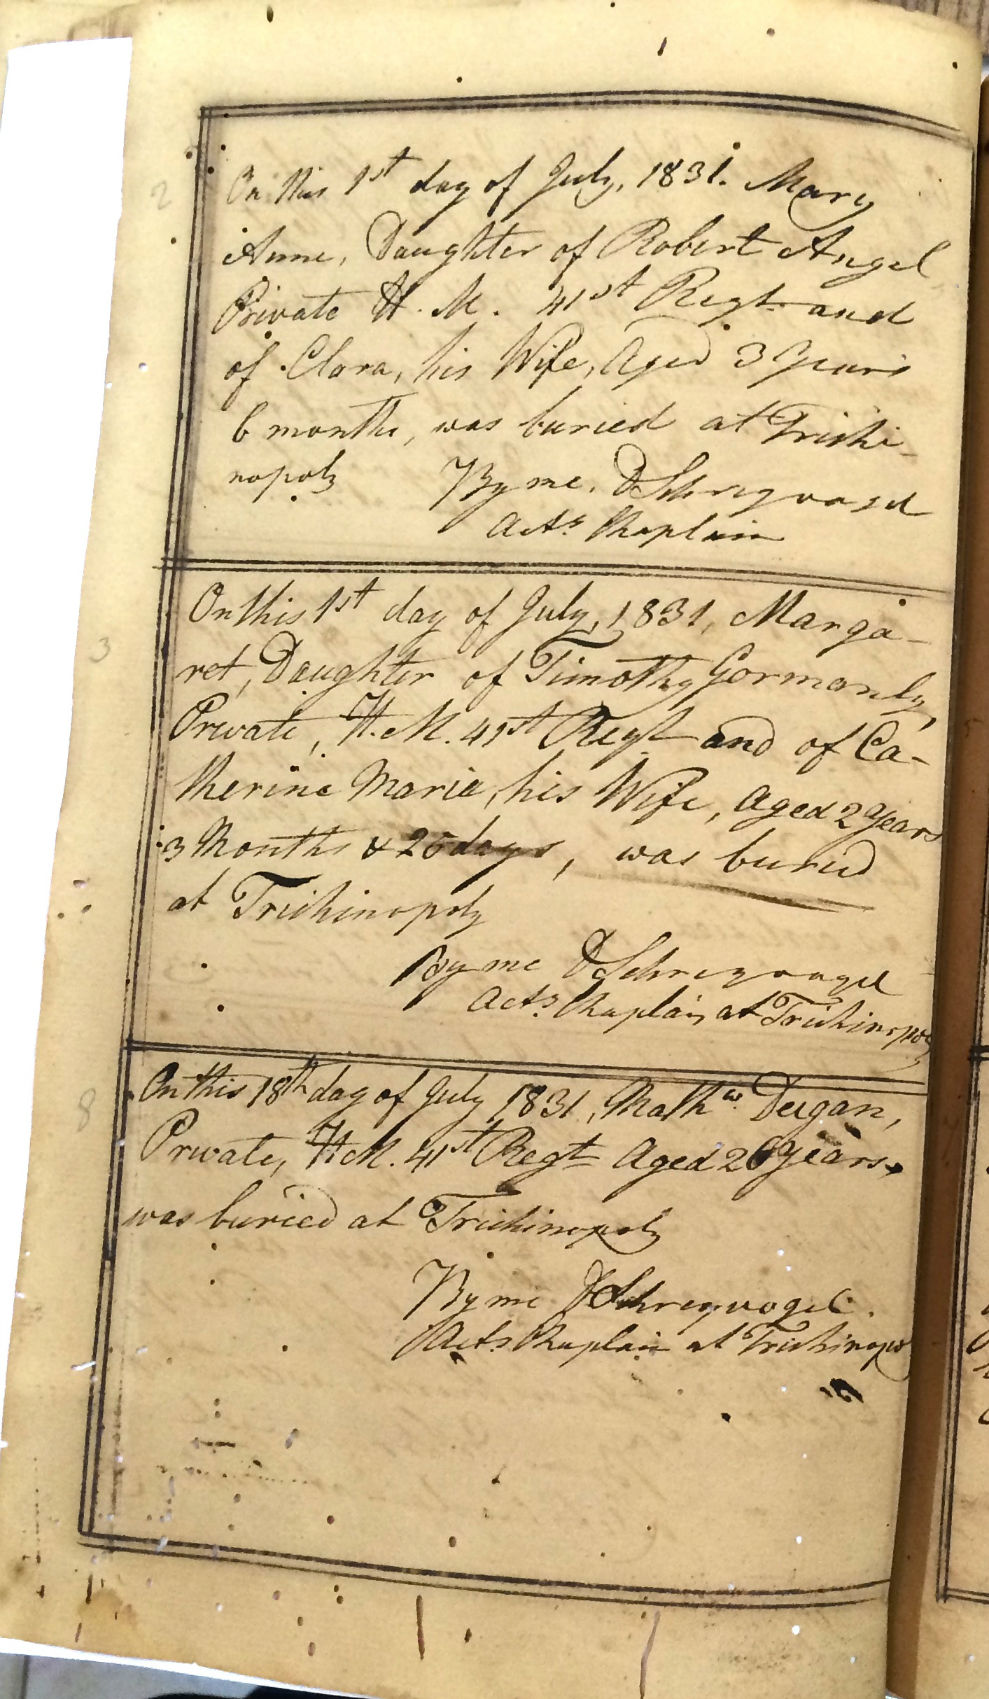 2
On this 1st day of July, 1831. Mary
Anne, Daughter of Robert Angel
Private H. M. 41st Regt and
of Clara, his Wife, Aged 3 Years
6 months, was buried at Trichi-
nopoly By me. D Schreyvogel
Actg Chaplain
3
On this 1st day of July, 1831, Marga-
ret, Daughter of Timothy Gormanly,
Private, H. M. 41st Regt and of Ca-
therine Maria, his Wife, Aged 2 Years
3 Months & 25 days, was buried
at Trichinopoly
By me D Schreyvogel
Actg Chaplain at Trichinopoly
8
On this 18th day of July 1831, Mathw. Deegan,
Private, H. M. 41st Regt Aged 26 Years,
was buried at Trichinopoly
By me D Schreyvogel.
Actg Chaplain at Trichinopo